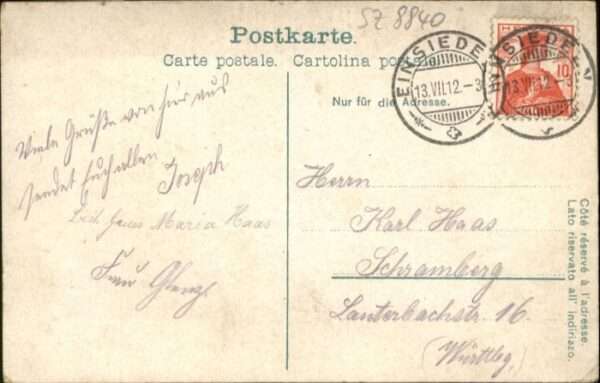 SZ 8840
Postkarte.
Carte postale. Cartolina postale.
EINSIEDELN
13.VII.12.–3
EINSIEDELN
13.VII.12.
10
Nur für die Adresse.
Viele Grüße von hier aus
sendet Euch allen
Joseph
Maria Haas
Frau
Herrn
Karl Haas
Schramberg
Lauterbachstr. 16.
(Württbg.)
Côté réservé à l'adresse.
Lato riservato all' indirizzo.